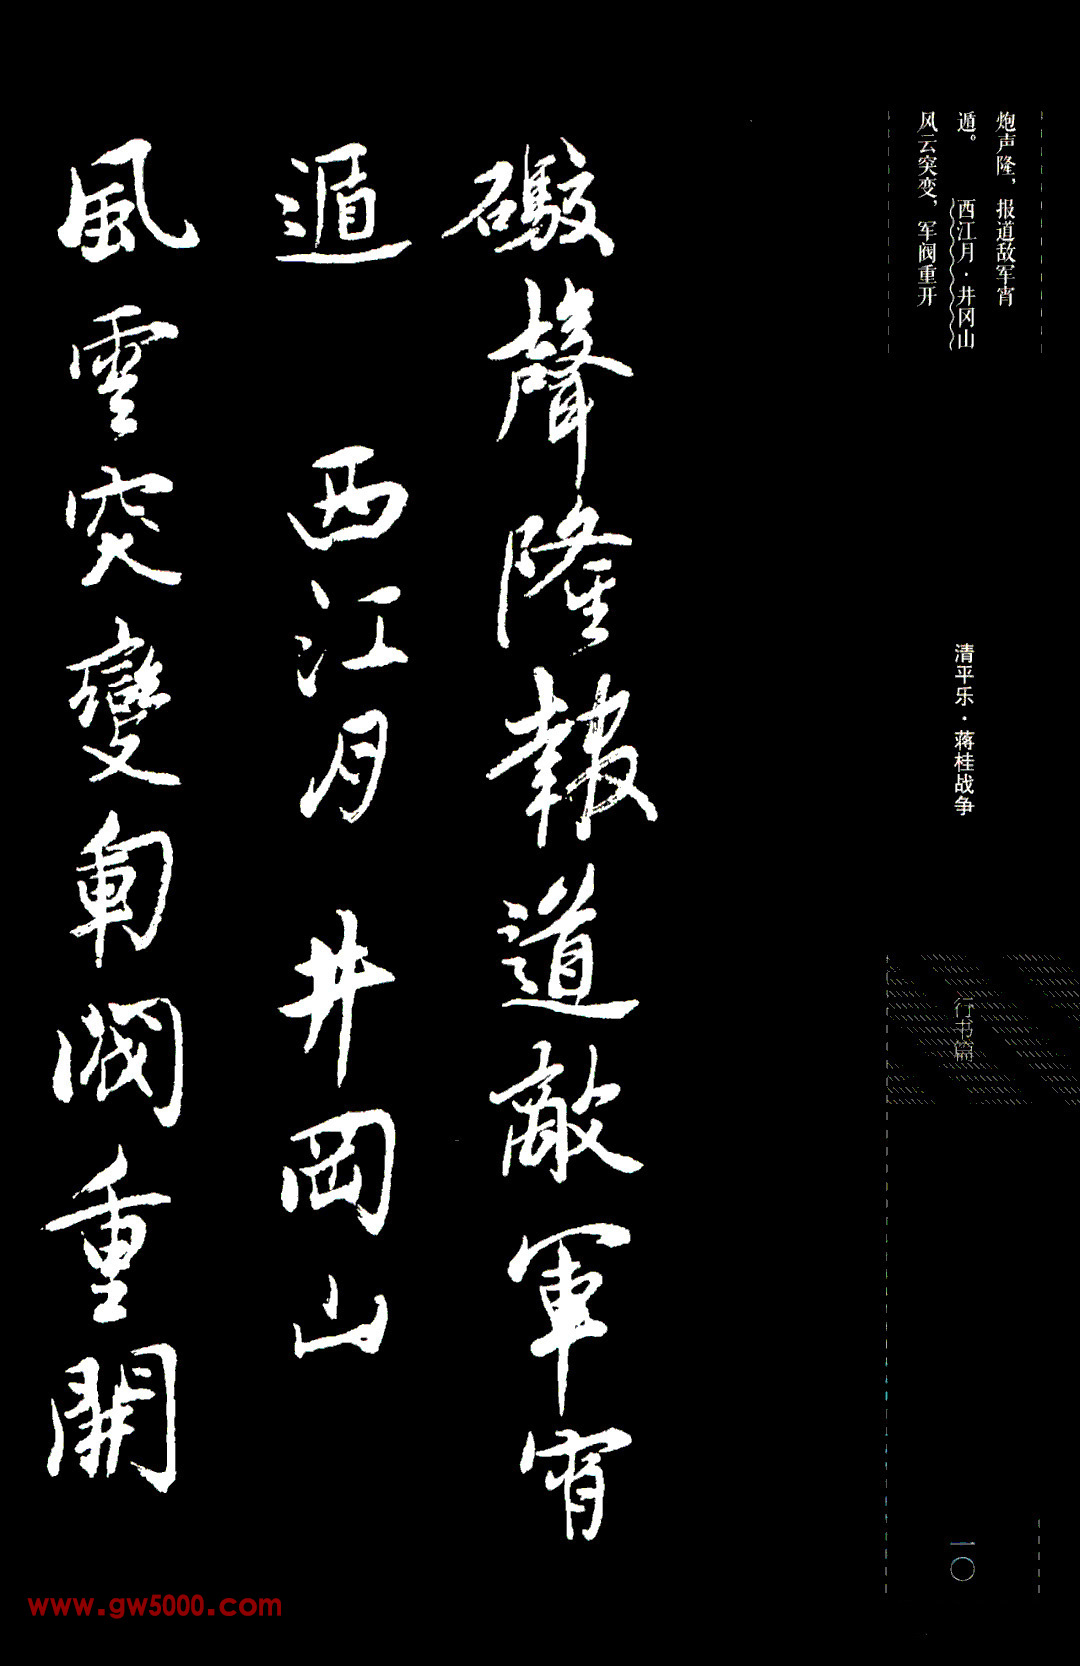 炮声隆，报道敌军宵
遁。　西江月·井冈山
风云突变，军阀重开
清平乐·蒋桂战争
行书篇
一〇
礮聲隆報道敵軍宵
遁　西江月　井岡山
風雲突變軍閥重開
www.gw5000.com